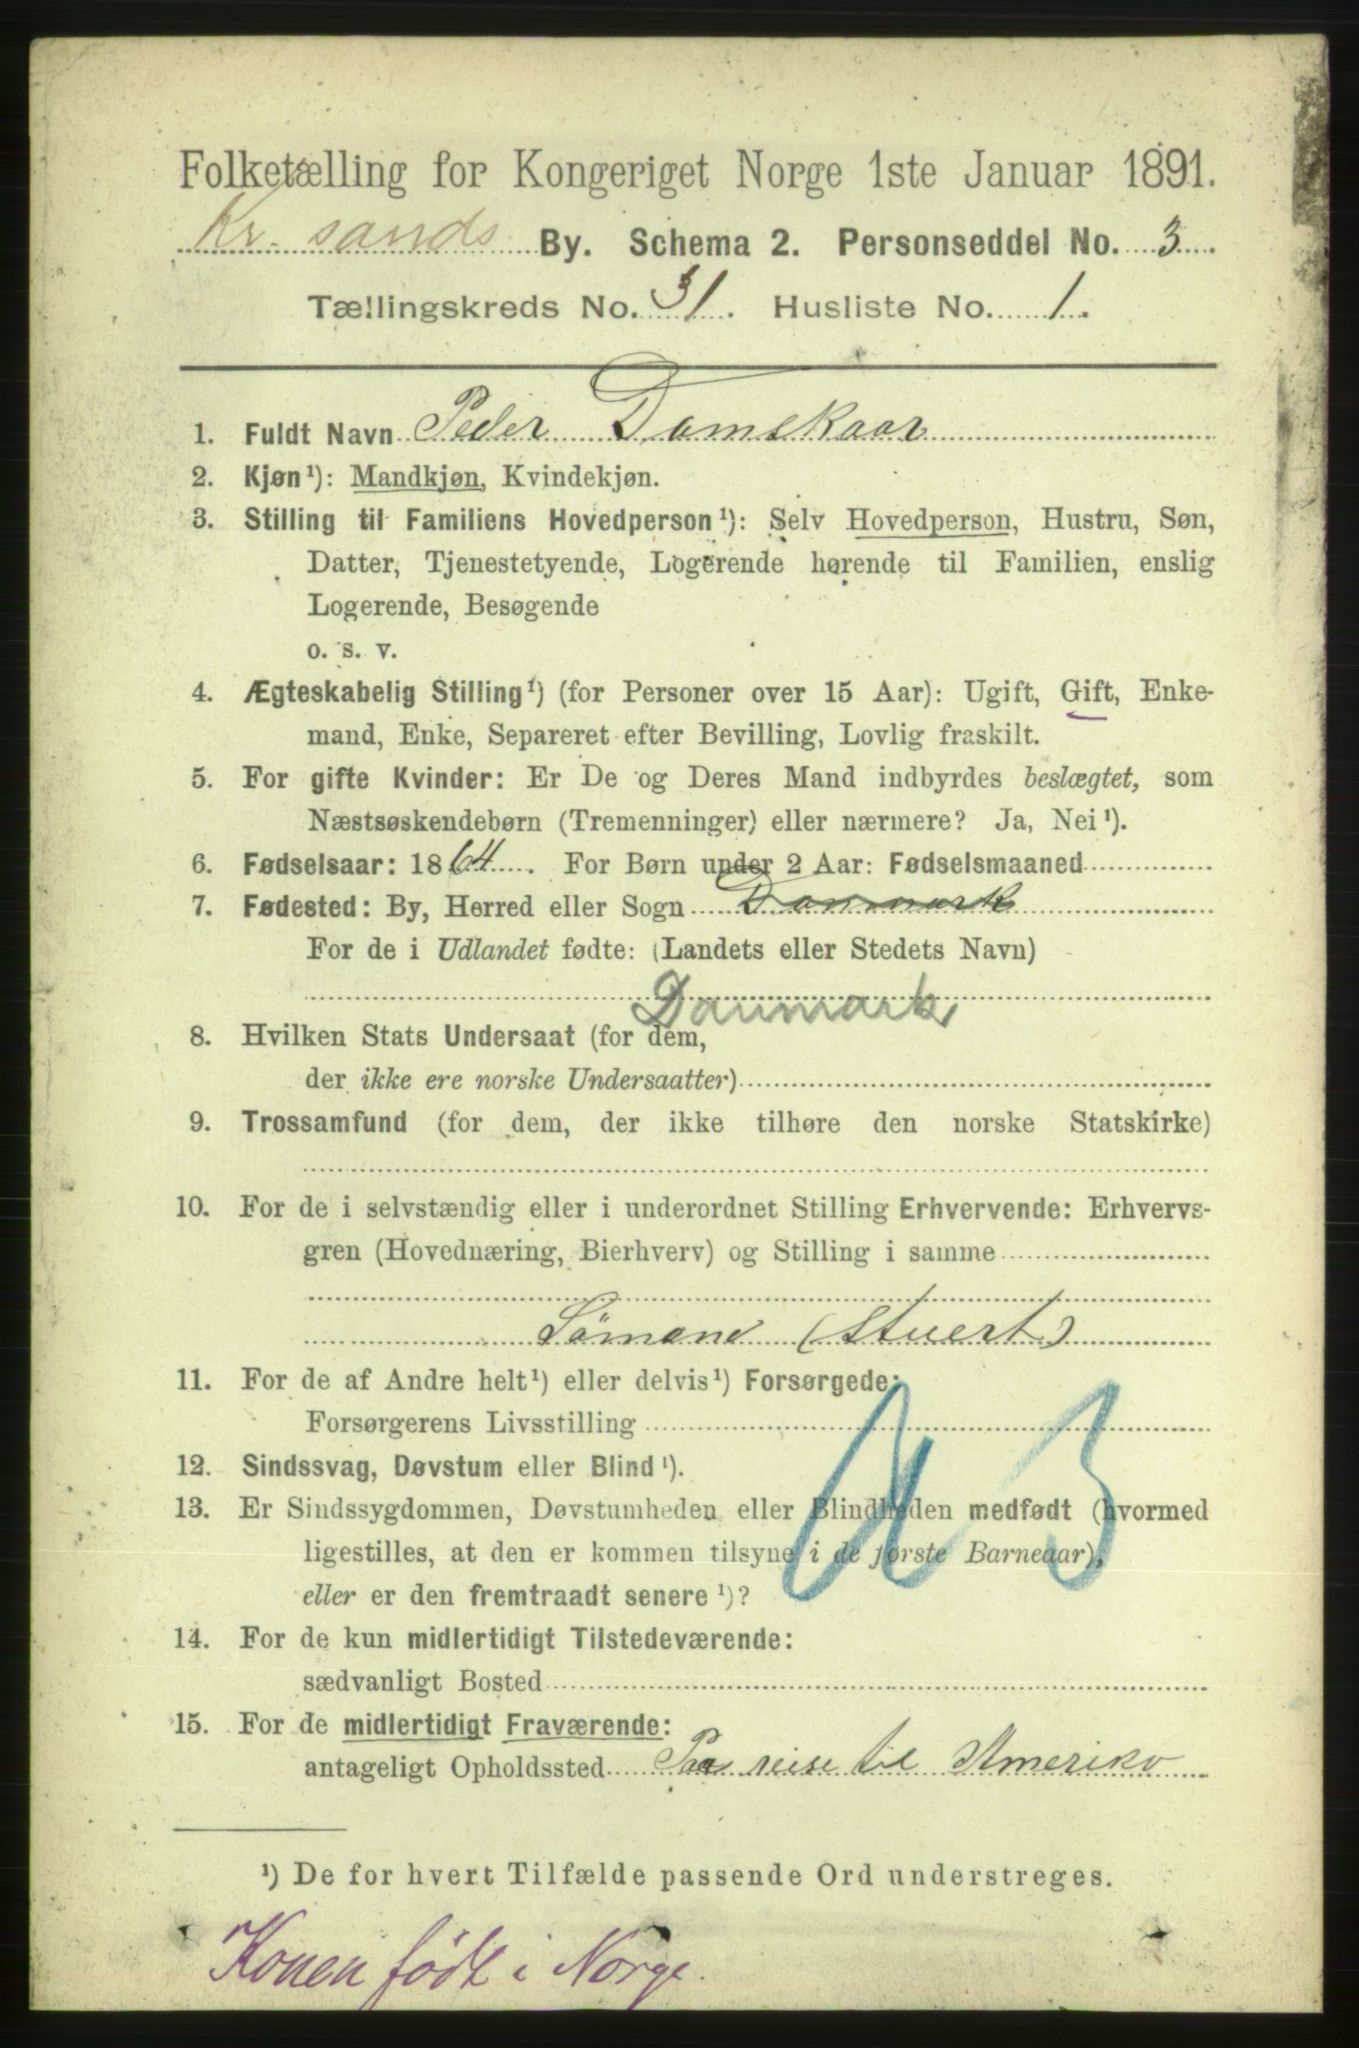 Folketælling for Kongeriget Norge 1ste Januar 1891.
Kr. sands By. Schema 2. Personseddel No. 3.
Tællingskreds No. 31. Husliste No. 1.
1. Fuldt Navn Peder Damskaar
2. Kjøn¹): Mandkjøn, Kvindekjøn.
3. Stilling til Familiens Hovedperson¹): Selv Hovedperson, Hustru, Søn,
Datter, Tjenestetyende, Logerende hørende til Familien, enslig
Logerende, Besøgende
o. s. v.
4. Ægteskabelig Stilling¹) (for Personer over 15 Aar): Ugift, Gift, Enke-
mand, Enke, Separeret efter Bevilling, Lovlig fraskilt.
5. For gifte Kvinder: Er De og Deres Mand indbyrdes beslægtet, som
Næstsøskendebørn (Tremenninger) eller nærmere? Ja, Nei¹).
6. Fødselsaar: 1864. For Børn under 2 Aar: Fødselsmaaned
7. Fødested: By, Herred eller Sogn Danmark
For de i Udlandet fødte: (Landets eller Stedets Navn)
Danmark
8. Hvilken Stats Undersaat (for dem,
der ikke ere norske Undersaatter)
9. Trossamfund (for dem, der ikke tilhøre den norske Statskirke)
10. For de i selvstændig eller i underordnet Stilling Erhvervende: Erhvervs-
gren (Hovednæring, Bierhverv) og Stilling i samme
Sömand (Stuert)
11. For de af Andre helt¹) eller delvis¹) Forsørgede:
Forsørgerens Livsstilling
12. Sindssvag, Døvstum eller Blind¹).
13. Er Sindssygdommen, Døvstumheden eller Blindheden medfødt (hvormed
ligestilles, at den er kommen tilsyne i de første Barneaar),
eller er den fremtraadt senere¹)?
14. For de kun midlertidigt Tilstedeværende:
sædvanligt Bosted
15. For de midlertidigt Fraværende:
antageligt Opholdssted Paa reise til Amerika
¹) De for hvert Tilfælde passende Ord understreges.
Konen födt i Norge.